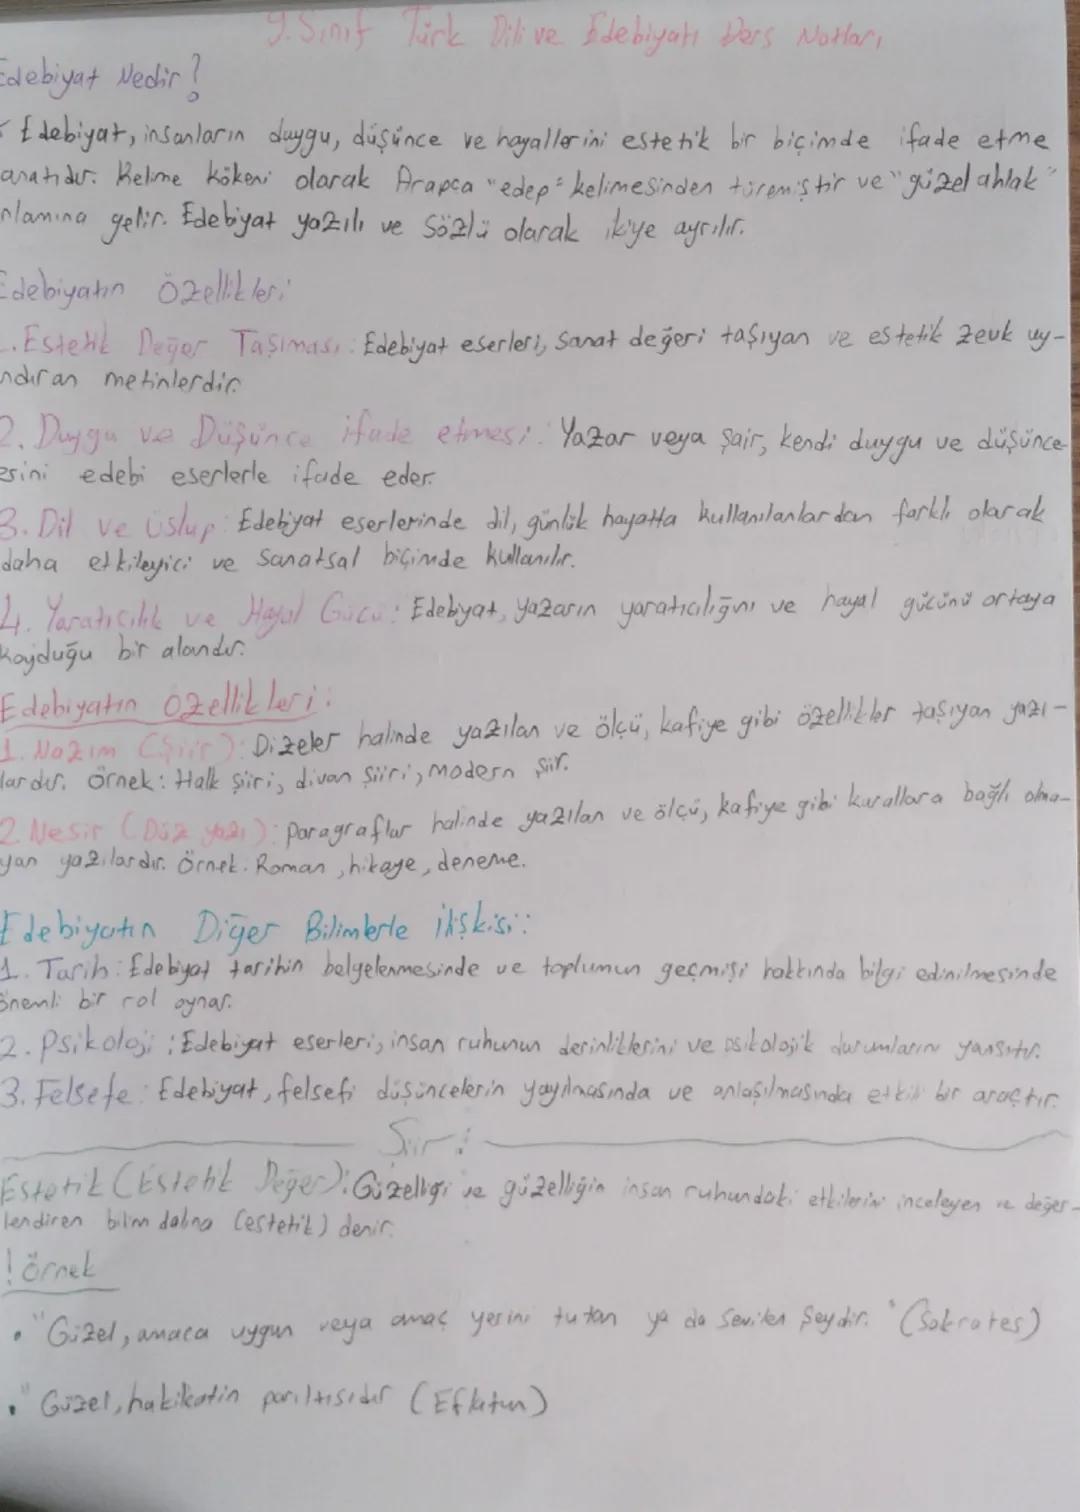 9. Sınıf Türk Dili ve Edebiyatı Ders Notları
Edebiyat Nedir?
Edebiyat, insanların duygu, düşünce ve hayallerini estetik bir biçimde ifade etme
anatıdır. Kelime kökeni olarak Arapça "edep" kelimesinden türemiştir ve "güzel ahlak"
nlamına gelir. Edebiyat yazılı ve Sözlü olarak ikiye ayrılır.
Edebiyatın Özellikleri
1. Estetik Değer Taşıması: Edebiyat eserleri, sanat değeri taşıyan ve estetik zevk uy-
ndıran metinlerdir.
2. Duygu ve Düşünce ifade etmesi: Yazar veya şair, kendi duygu ve düşünce
esini edebi eserlerle ifade eder.
3. Dil ve üslup: Edebiyat eserlerinde dil, günlük hayatta kullanılanlardan farklı olarak
daha etkileyici ve sanatsal biçimde kullanılır.
4. Yaratıcılık ve Hayal Gücü: Edebiyat, yazarın yaratıcılığını ve hayal gücünü ortaya
koyduğu bir alandır.
Edebiyatın özellikleri:
1. Nazım (Şiir): Dizeler halinde yazılan ve ölçü, kafiye gibi özellikler taşıyan yazı-
lardır. Örnek: Halk şiiri, divan şiiri, modern şiir.
2. Nesir (Düz yazı): paragraflar halinde yazılan ve ölçü, kafiye gibi kurallara bağlı olma-
yan yazılardır. Örnek: Roman, hikaye, deneme.
Edebiyatın Diğer Bilimlerle ilişkisi:
1. Tarih: Edebiyat tarihin belgelenmesinde ve toplumun geçmişi hakkında bilgi edinilmesinde
önemli bir rol oynar.
2. Psikoloji: Edebiyat eserleri, insan ruhunun derinliklerini ve psikolojik durumlarını yansıtır.
3. Felsefe: Edebiyat, felsefi düşüncelerin yayılmasında ve anlaşılmasında etkili bir araçtır.
Şiir:
Estetik (Estetik Değer): Güzelliği ve güzelliğin insan ruhundaki etkilerini inceleyen ve değer-
lendiren bilim dalına (estetik) denir.
! Örnek
• "Güzel, amaca uygun veya amaç yerini tutan ya da sevilen şeydir." (Sokrates)
• "Güzel, hakikatin parıltısıdır (Eflatun)